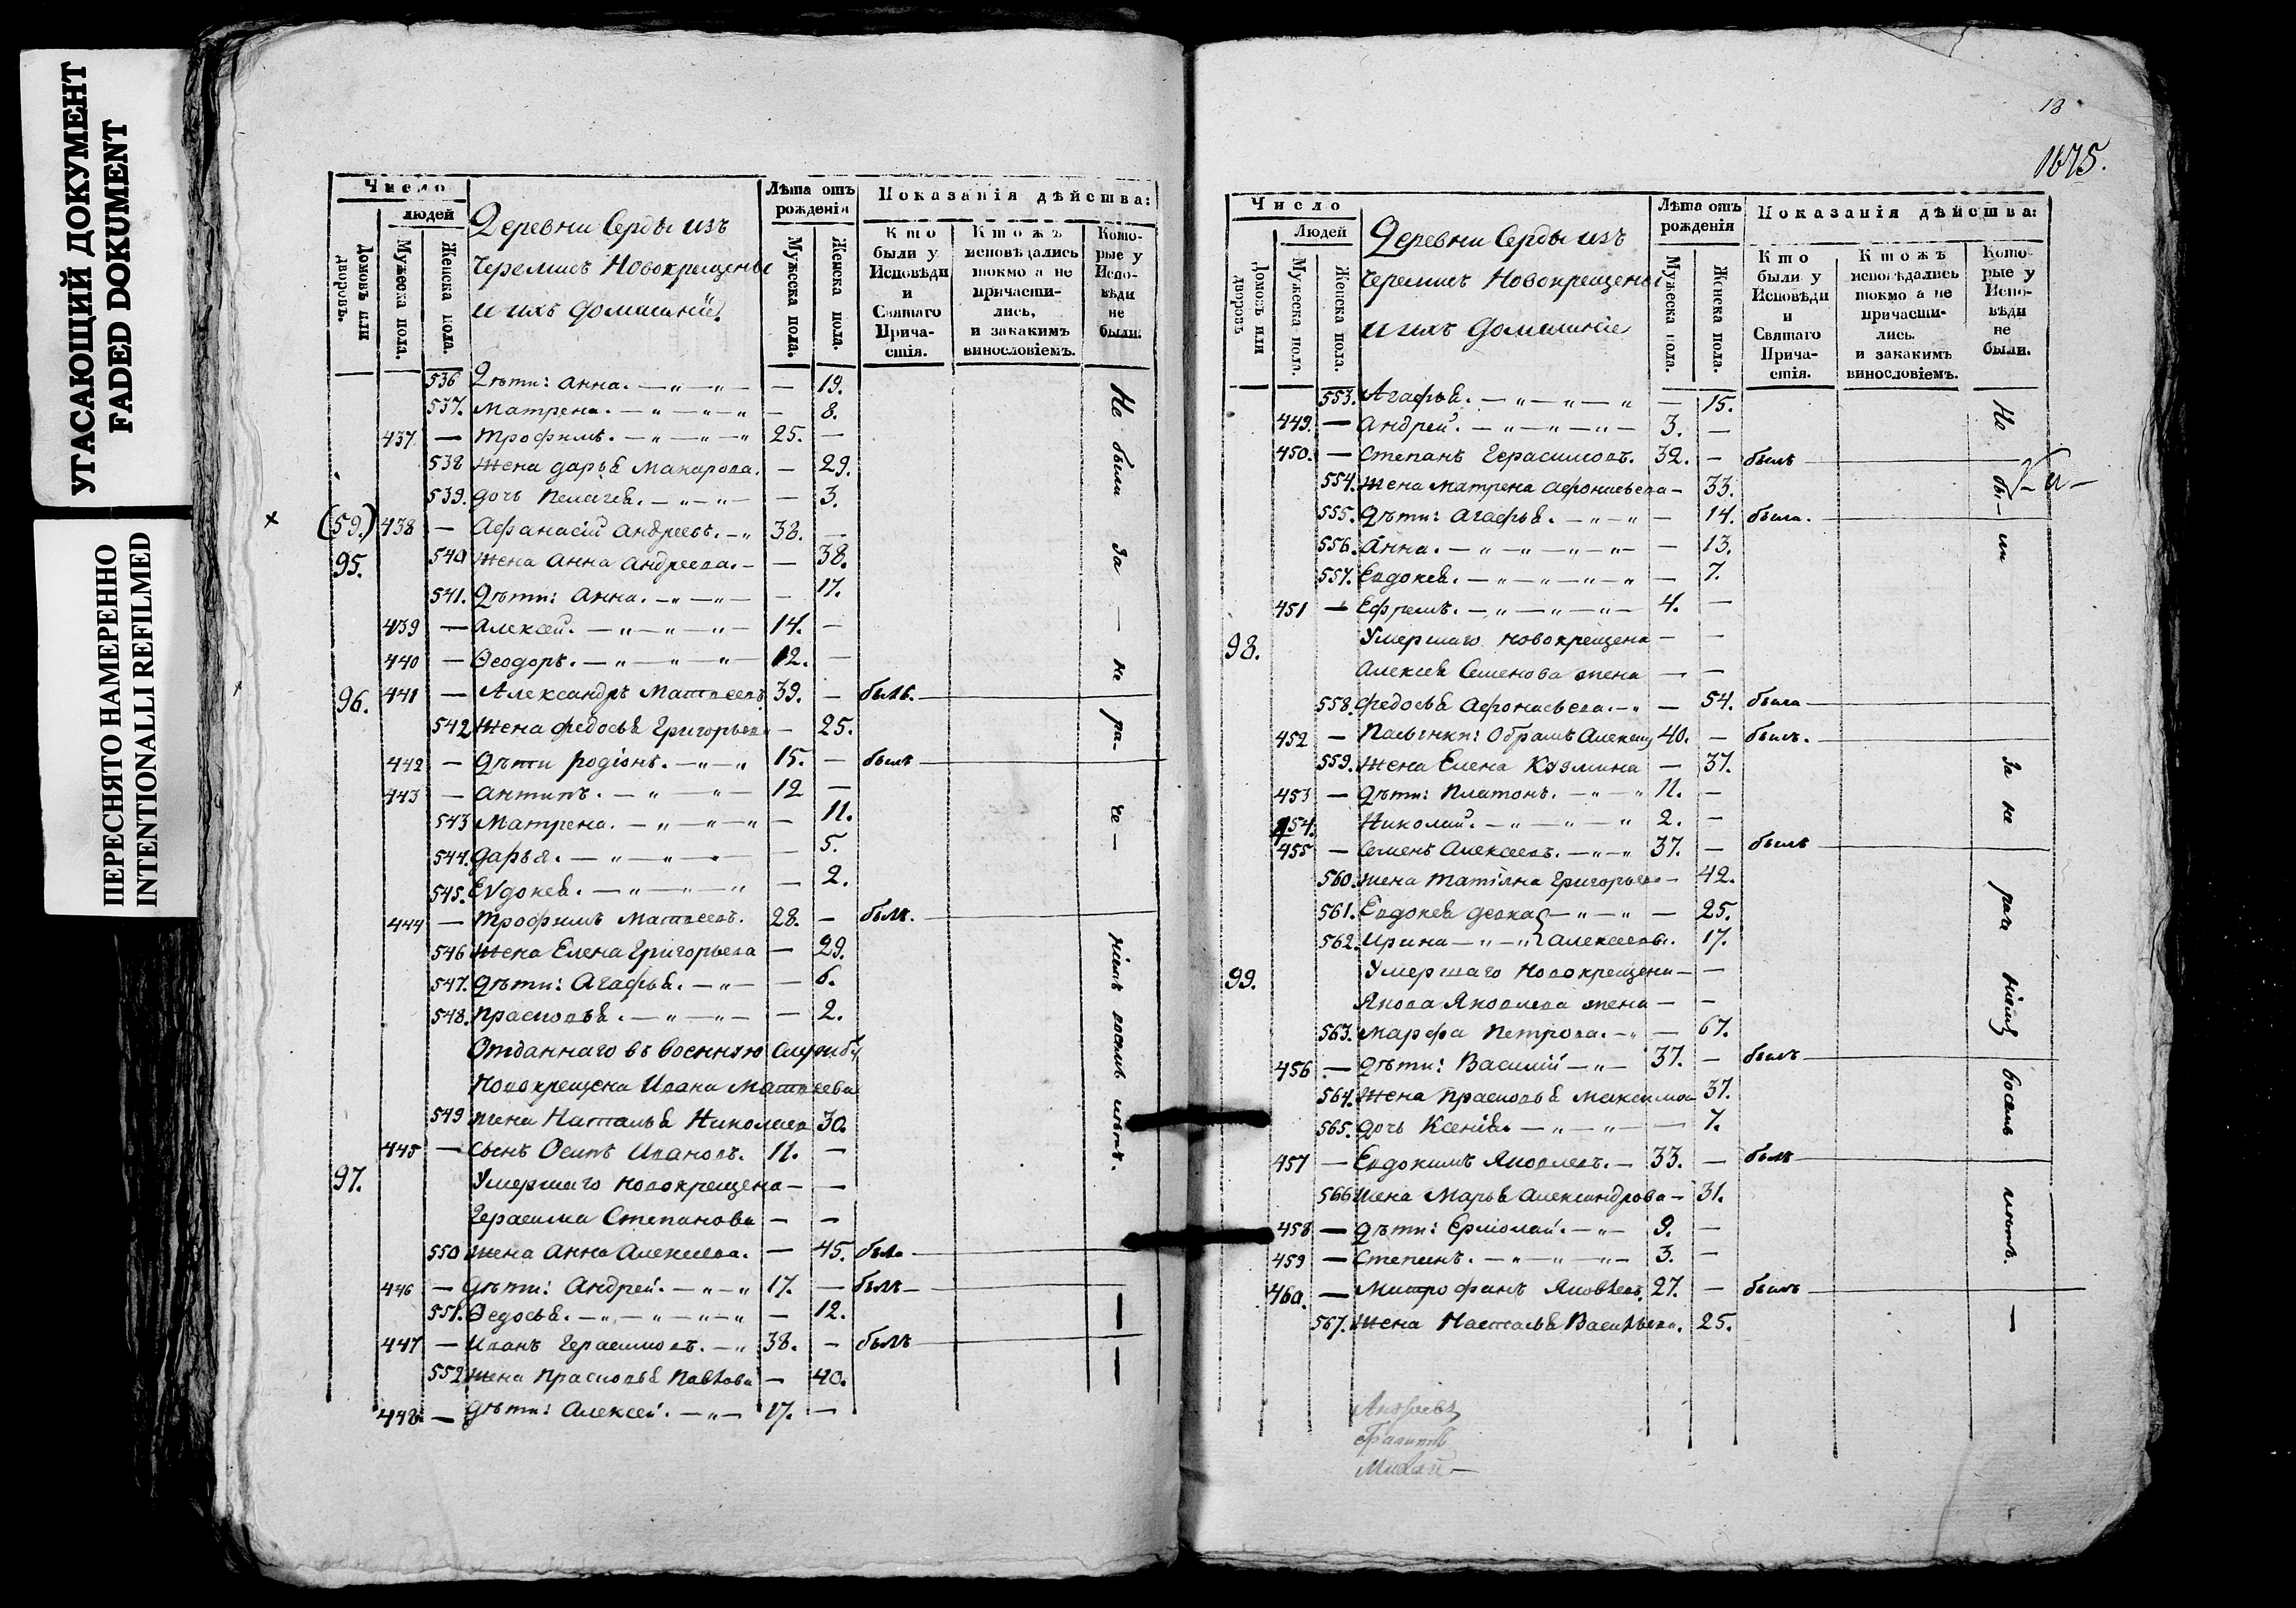 УГАСАЮЩИЙ ДОКУМЕНТ
FADED DOKUMENT
ПЕРЕСНЯТО НАМЕРЕННО
INTENTIONALLI REFILMED
Число
людей
Домовъ или дворовъ.
Мужеска пола.
Женска пола.
Деревни Серды изъ
Черемисъ Новокрещены
и ихъ домашніи.
Лѣта отъ рожденія
Мужеска пола.
Женска пола.
Показанія дѣйства:
Кто были у Исповѣди и Святаго Причастія.
Ктожъ исповѣдались токмо а не причастились, и закакимъ винословіемъ.
Которые у Исповѣди не были.
536 Дѣти: Анна. — 19.
537. Матрена. — 8.
437 — Трофимъ. 25. —
538 Жена Дарья Макарова. — 29.
539. Дочь Пелагея. — 3.
(59.) 438 — Афанасій Андреевъ. 38. —
95. 540 Жена Анна Андреева. — 38.
541. Дѣти: Анна. — 17.
439 — Алексей. 14. —
440 — Ѳеодоръ. 12. —
96. 441 — Александръ Матвеевъ 39. — былъ.
542 Жена Федосья Григорьева — 25.
442 — Дѣти Родіонъ. 15. — былъ
443 — Антипъ. 12 —
543 Матрена. — 11.
544. Дарья. — 5.
545. Евдокея. — 2.
444 — Трофимъ Матвеевъ. 28. — былъ.
546 Жена Елена Григорьева — 29.
547. Дѣти: Агафья. — 6.
548. Прасковья. — 2.
Отданнаго въ военную службу
Новокрещена Ивана Матвеева
549 жена Наталья Николаева 30.
445 — Сынъ Осипъ Ивановъ. 11. —
97. Умершаго новокрещена — —
Герасима Степанова — —
550 Жена Анна Алексеева. — 45. была
446 — Дѣти: Андрей. 17. — былъ
551. Ѳедосья. — 12.
447 — Иванъ Герасимовъ. 38. — былъ
552 Жена Прасковья Павлова — 40.
448. — Дѣти: Алексей. 17. —
Не были За — не ра- че — ніемъ восемь лѣтъ.
18
1675.
Число
Людей
Домовъ или дворовъ
Мужеска пола.
Женска пола.
Деревни Серды изъ
Черемисъ Новокрещены
и ихъ домашніе
Лѣта отъ рожденія
Мужеска пола.
Женска пола.
Показанія дѣйства:
Кто были у Исповѣди и Святаго Причастія.
Ктожъ исповѣдались токмо а не причастились. и закакимъ винословіемъ.
Которые у Исповѣди не были.
553. Агафья. — 15.
449. — Андрей. 3. —
450. — Степанъ Герасимовъ. 32. — былъ
554. Жена Матрена Афонасьева — 33.
555. Дѣти: Агафья. — 14. была.
556. Анна. — 13.
557. Евдокея. — 7.
451 — Ефремъ. 4. —
98. Умершаго новокрещена — —
Алексея Семенова жена — —
558. Федосья Афонасьева. — 54. была
452 — Пасынки: Обрамъ Алексеев 40. — былъ.
559. Жена Елена Кузмина — 37.
453 — Дѣти: Платонъ. 11. —
454. Николай. 2. —
455 — Семенъ Алексеевъ. 37. — былъ
560. жена Татіяна Григорьева — 42.
561. Евдокея девка — 25.
562. Ирина — Алексеевы. 17.
99. Умершаго Новокрещена — —
Якова Яковлева жена — —
563. Марфа Петрова. — 67.
456 — Дѣти: Василій 37. — былъ
564. Жена Прасковья Максимова 37.
565. Дочь Ксенія. — 7.
457 — Евдокимъ Яковлевъ. 33. — былъ
566 Жена Марья Александрова — 31.
458 — Дѣти: Ермолай. 9. —
459 — Степанъ. 3. —
460. — Митрофанъ Яковлевъ. 27. — былъ
567. Жена Наталья Васильева. 25.
Не бы — ли За не раченіемъ восемь лѣтъ.